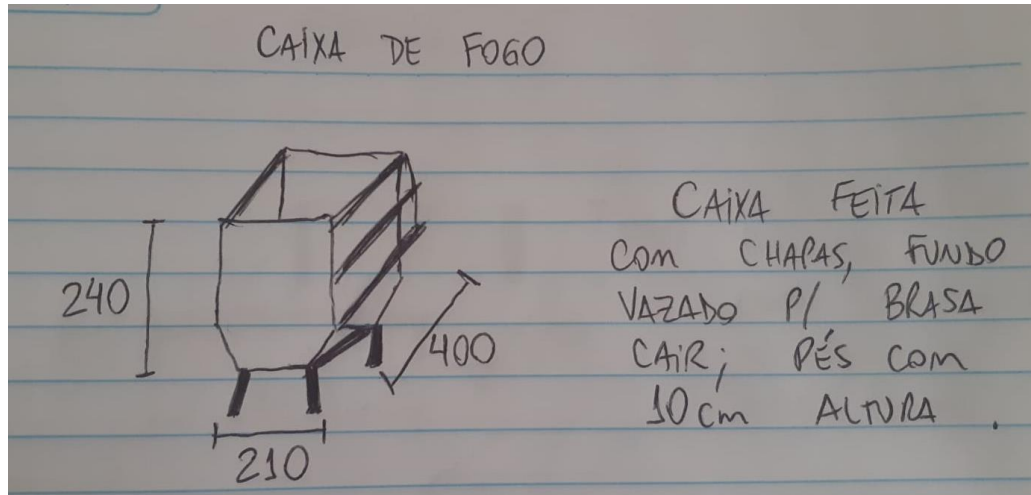 CAIXA DE FOGO
240
400
210
CAIXA FEITA
COM CHAPAS, FUNDO
VAZADO P/ BRASA
CAIR; PÉS COM
10cm ALTURA.